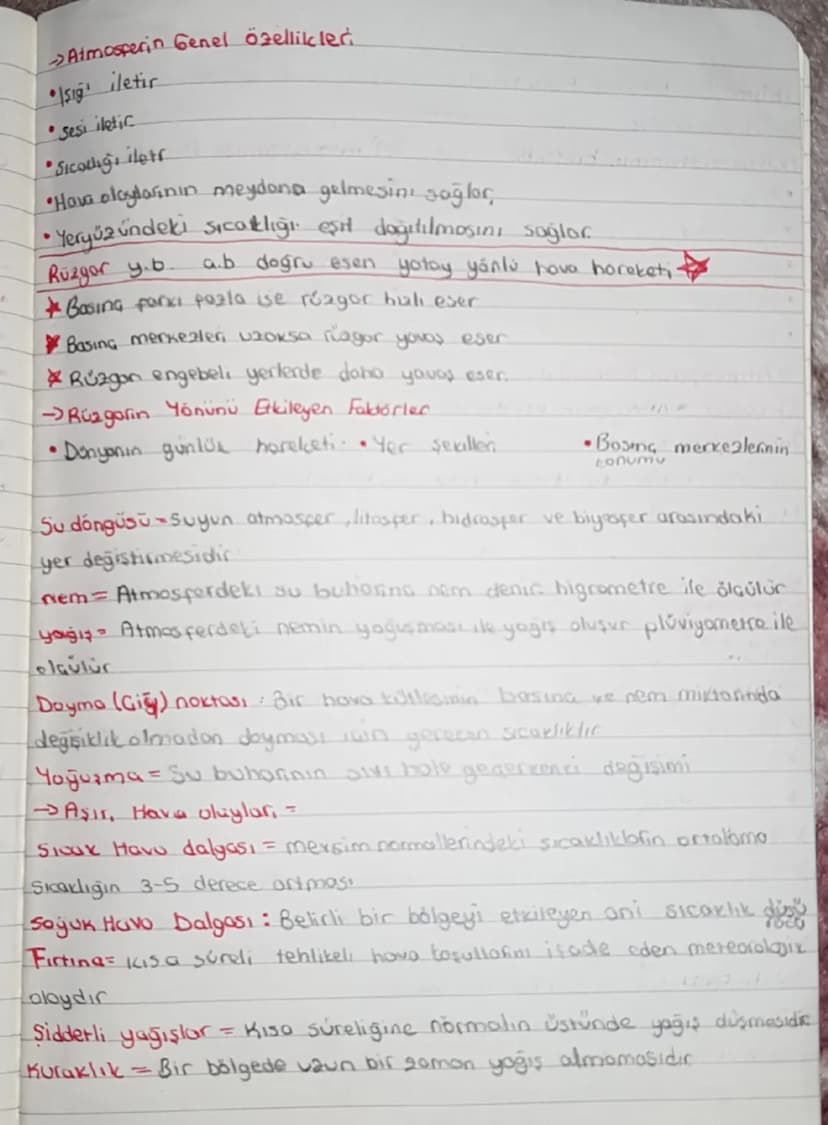 → Atmosferin Genel özellikleri
• Işığı iletir
• sesi iletir
• sıcaklığı iletir
• Hava olaylarının meydana gelmesini sağlar.
• Yeryüzündeki sıcaklığı eşit dağıtılmasını sağlar.
Rüzgar y.b. a.b doğru esen yatay yönlü hava hareketi ☆
* Basınç farkı fazla ise rüzgar hızlı eser
* Basınç merkezleri uzaksa rüzgar yavaş eser
* Rüzgar engebeli yerlerde daha yavaş eser.
→ Rüzgarın Yönünü Etkileyen Faktörler
• Dünyanın günlük hareketi • Yer şekilleri • Basınç merkezlerinin
konumu
Su döngüsü = suyun atmosfer, litosfer, hidrosfer ve biyosfer arasındaki
yer değiştirmesidir
nem = Atmosferdeki su buharına nem denir. higrometre ile ölçülür
yağış = Atmosferdeki nemin yoğuşması ile yağış oluşur plüviyometre ile
ölçülür
Doyma (Çiğ) noktası : Bir hava kütlesinin basınç ve nem miktarında
değişiklik olmadan doyması için gereken sıcaklıktır
Yoğuşma = Su buharının sıvı hale geçerkenki değişimi
→ Aşırı Hava olayları =
Sıcak Hava dalgası = mevsim normallerindeki sıcaklıkların ortalama
Sıcaklığın 3-5 derece artması
Soğuk Hava Dalgası : Belirli bir bölgeyi etkileyen ani sıcaklık düşü
Fırtına = kısa süreli tehlikeli hava koşullarını ifade eden meteorolojik
olaydır
Şiddetli yağışlar = Kısa süreliğine normalin üstünde yağış düşmesidir
Kuraklık = Bir bölgede uzun bir zaman yağış almamasıdır